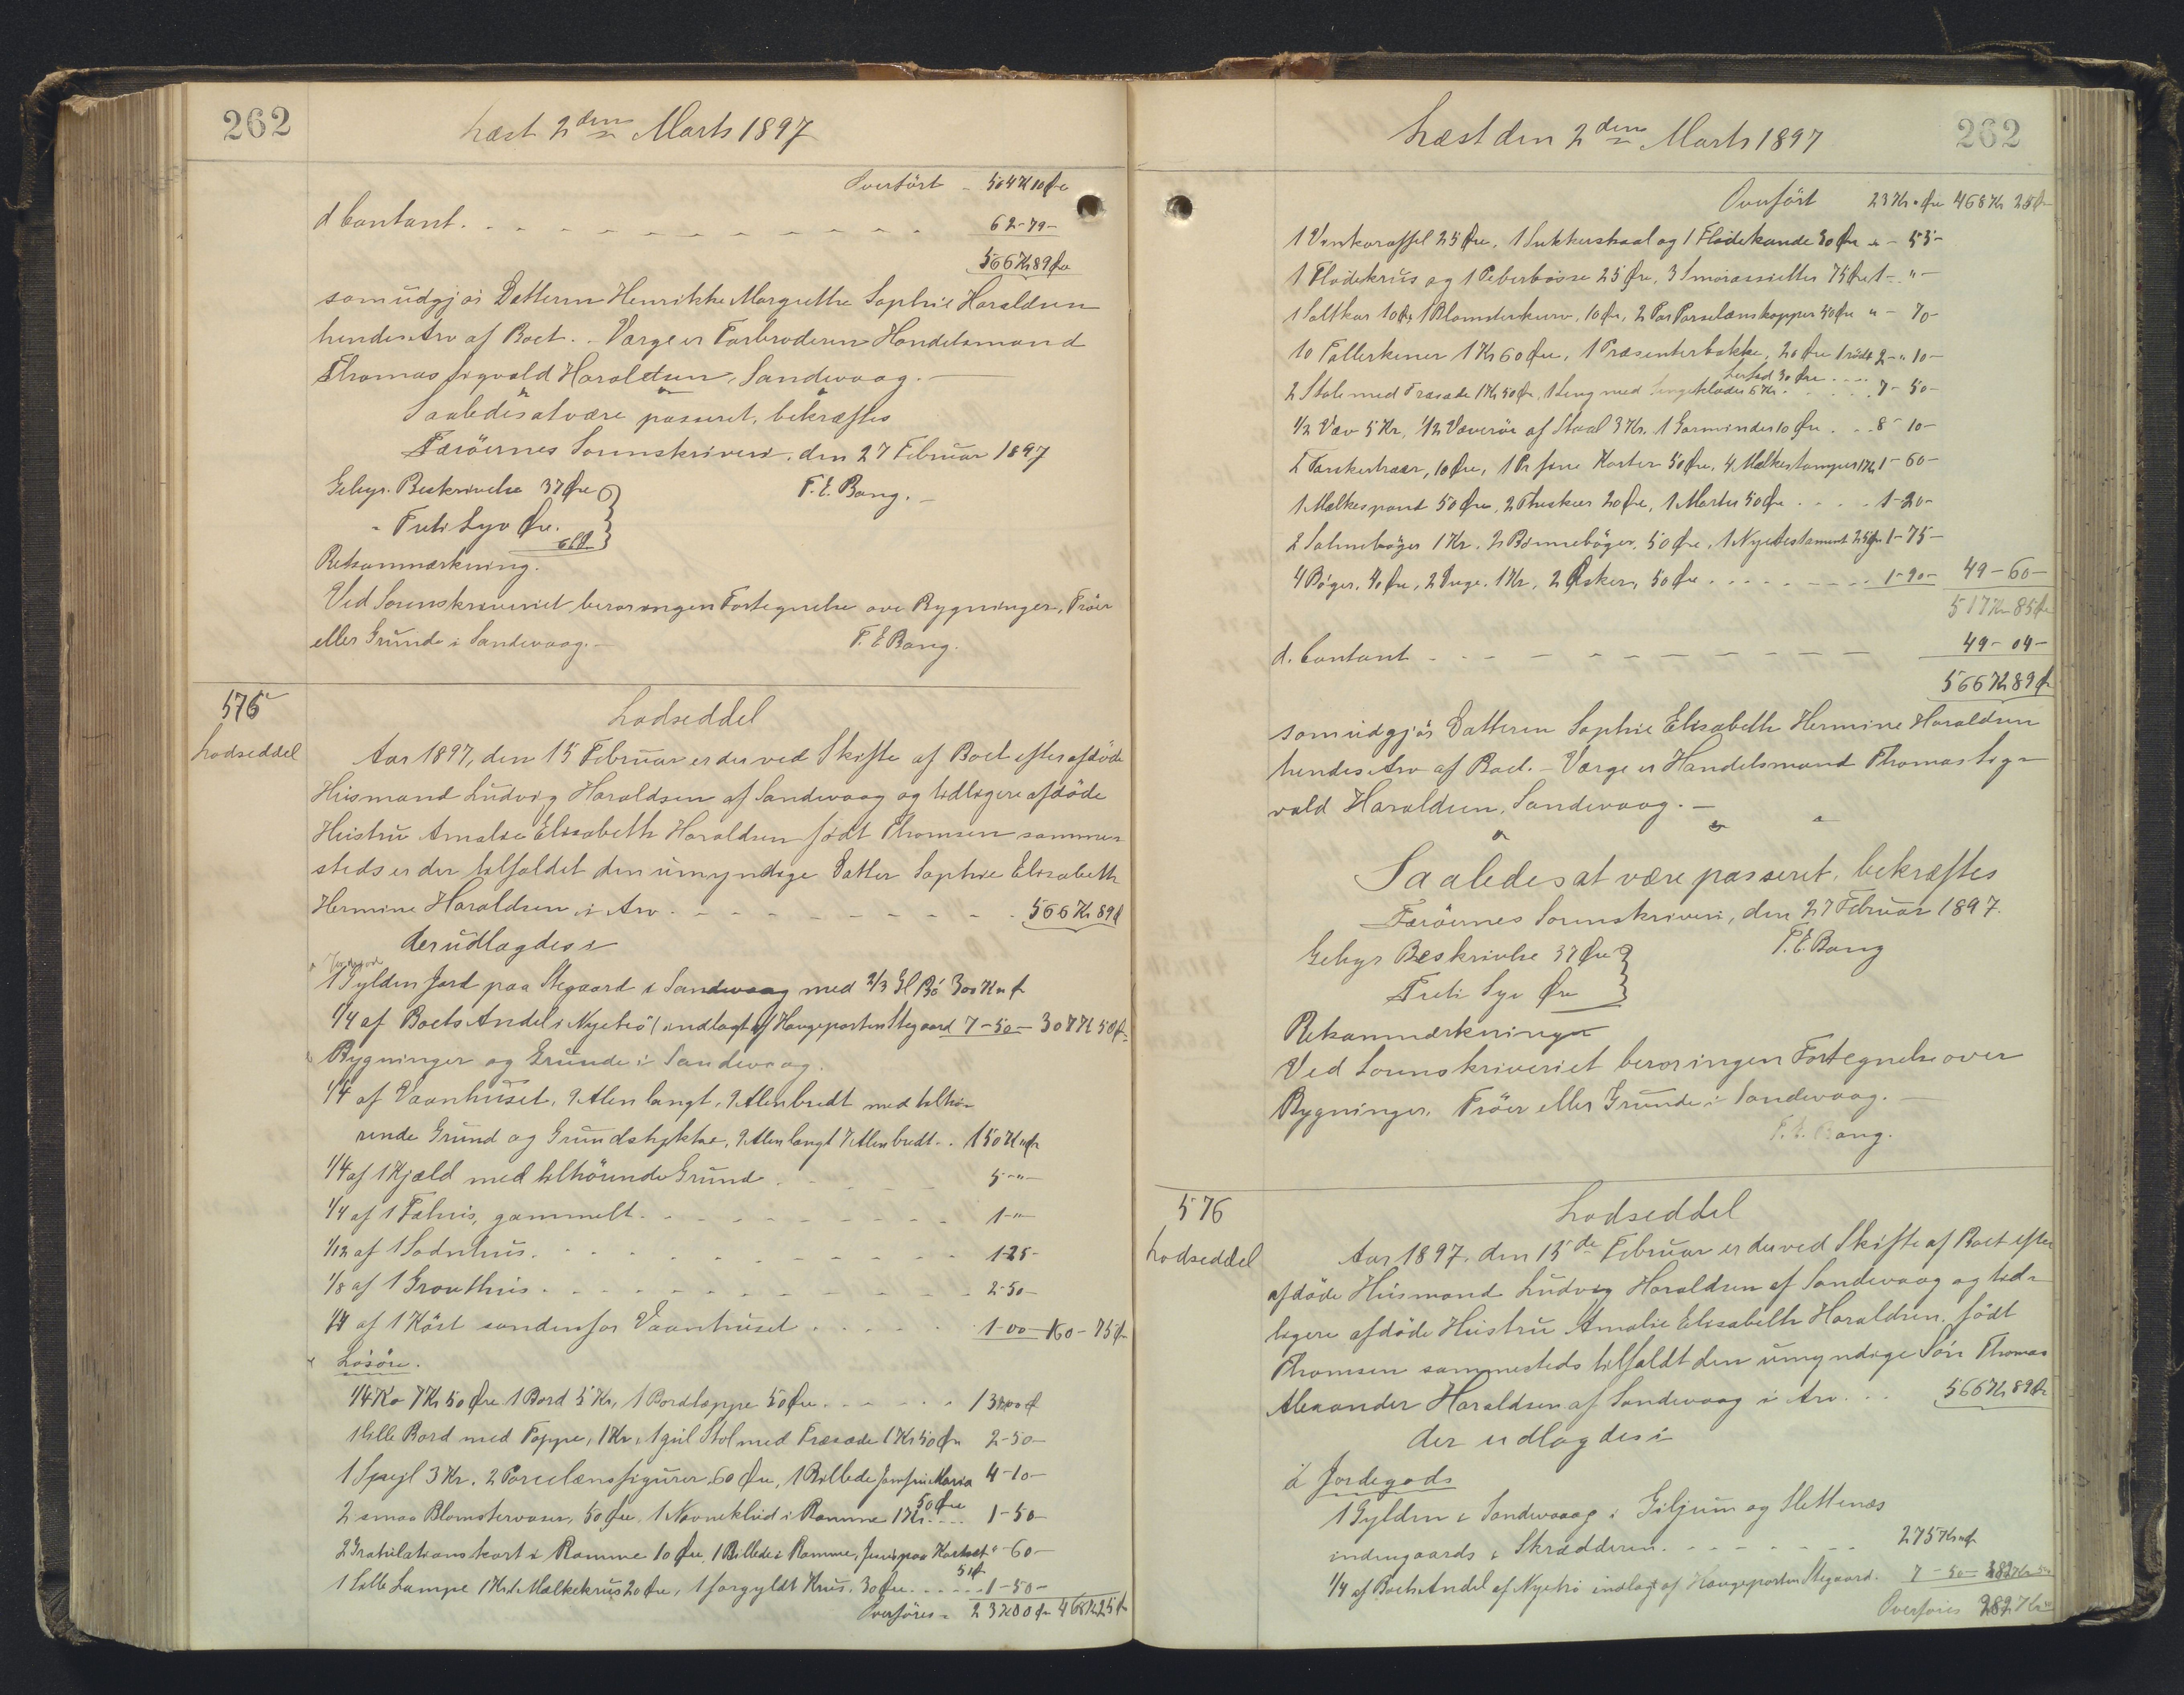 262
Læst 2den Marts 1897
Overført - 504 Kr 10 Øre
d Contant. 62-79-
566 Kr 89 Øre
som udgjør Datteren Henrikke Margrethe Sophie Haraldsen
hendes Arv af Boet. - Værge er Farbroderen Handelsmand
Thomas Sigvald Haraldsen, Sandevaag. -
Saaledes at være passeret, bekræftes
Færøernes Sorenskriveri, den 27 Februar 1897
Gebyr. Beskrivelse 37 Øre F. E. Bang. -
- Treti Syv Øre.
Retsanmærkning.
Ved Sorenskriveriet beror ingen Fortegnelse over Bygninger, Tröer
eller Grunde i Sandevaag. - F. E Bang.
575
Lodseddel
Lodseddel
Aar 1897, den 15 Februar er der ved Skifte af Boet efter afdöde
Huusmand Ludvig Haraldsen af Sandevaag og tidligere afdöde
Hustru Amalie Elisabeth Haraldsen født Thomsen sammes-
steds er der tilfaldet den umyndige Datter Sophie Elisabeth
Hermine Haraldsen i Arv. 566 Kr 89 Ø
der udlagdes i
a Jordegods
1 Gylden Jord paa Stegaard i Sandevaag med 2/3 Gl Bö 300 Kr " Ø
1/4 af Boets Andel i Nyebö (indlagt af Haugeparten Stegaard 7-50- 307 Kr 50 Ø
b Bygninger og Grunde i Sandevaag.
1/4 af Vaanhuset, 9 Alen langt, 9 Alen bredt med tilhö-
rende Grund og Grundstykke, 9 Alen langt 7 Alen bredt. . 150 Kr " Ø
1/4 af 1 Kjæld med tilhörende Grund 5-"-
1/4 af 1 Fæhus, gammelt. 1-"-
1/12 af 1 Sodnhus. 1-25-
1/8 af 1 Grouthus. 2-50-
1/4 af 1 Köst søndenfor Vaanhuset 1-00- 160-75 Ø
c Løsöre.
1/4 Ko 7 Kr 50 Øre 1 Bord 5 Kr, 1 Bordtæppe 50 Øre 13 Kr 00 Ø
1 lille Bord med Tæppe, 1 Kr, 1 gul Stol med Træsæde 1 Kr 50 Øre 2-50-
1 Spejl 3 Kr. 2 Porcelænsfigurer 60 Øre, 1 Billede Jomfru Maria 4-10-
50 Øre
2 smaa Blomstervaser, 50 Øre, 1 Navneklud i Ramme 1 Kr 1-50-
2 Gratulationskort i Ramme 10 Øre, 1 Billede i Ramme, Jesus paa Korset " -60-
50 Ø
1 lille Lampe 1 Kr. 1 Mælkekrus 20 Øre, 1 forgyldt Krus, 30 Øre 1-50-
Overføres - 23 Kr 00 Ø 468 Kr 25 Ø
262
Læst den 2den Marts 1897
Overfört 23 Kr " Øre 468 Kr 25 Ø
1 Vinkaraffel 25 Øre, 1 Sukkerskaal og 1 Flødekande 30 Øre " - 55-
1 Flødekrus og 1 Peberbösse 25 Øre, 3 Smörassietter 75 Øre 1-"-
1 Saltkar 10 Ø, 1 Blomsterkurv, 10 Øre, 2 Par Porselænskopper 50 Øre " - 70-
10 Tallerkener 1 Kr 60 Øre, 1 Præsenterbakke, 20 Øre 1 rödt 2-"10-
Lerfad 30 Øre
2 Stole med Træsæde 1 Kr 50 Ø, 1 Seng med Sengeklæder 6 Kr. 7-50-
1/2 Væv 5 Kr, 1/2 Væverör af Staal 3 Kr. 1 Garnvinder 10 Øre 8-10-
1 Par fine Karter 50 Øre, 4 1-60-
1 Mælkespand 50 Øre, 2 Theskeer 20 Øre, 1 Morter 50 Øre 1-20-
2 Salmebøger 1 Kr, 2 Bönneböger, 50 Øre, 1 Nyetestament 25 Øre 1-75-
4 Böger, 40 Øre, 2 Duge, 1 Kr, 2 Æsker, 50 Øre 1-90- 49-60-
517 Kr 85 Ø
d. Contant 49-04-
566 Kr 89 Ø
som udgjör Datteren Sophie Elisabeth Hermine Haraldsen
hendes Arv af Boet. - Værge er Handelsmand Thomas Sig-
vald Haraldsen, Sandevaag. -
Saaledes at være passeret, bekræftes
Færöernes Sorenskriveri, den 27 Februar 1897.
Gebyr Beskrivelse 37 Øre F. E. Bang
Treti Syv Øre
Retsanmærkning
Ved Sorenskriveriet beror ingen Fortegnelse over
Bygninger, Tröer eller Grunde i Sandevaag. -
F. E. Bang.
576
Lodseddel
Lodseddel
Aar 1897, den 15de Februar er der ved Skifte af Boet efter
afdöde Huusmand Ludvig Haraldsen af Sandevaag og tid-
ligere afdöde Hustru Amalie Elisabeth Haraldsen, födt
Thomsen sammesteds tilfaldt den umyndige Sön Thomas
Alexander Haraldsen af Sandevaag i Arv 566 Kr 89 Øre
der udlagdes i
a Jordegods
1 Gylden i Sandevaag i Giljum og Slettenæs
indengaards i Skrædderen. 275 Kr " Ø
1/4 af Boets Andel af Nyebö indlagt af Haugeparten Stegaard. 7-50- 282 Kr 50
Overföres 282 Kr